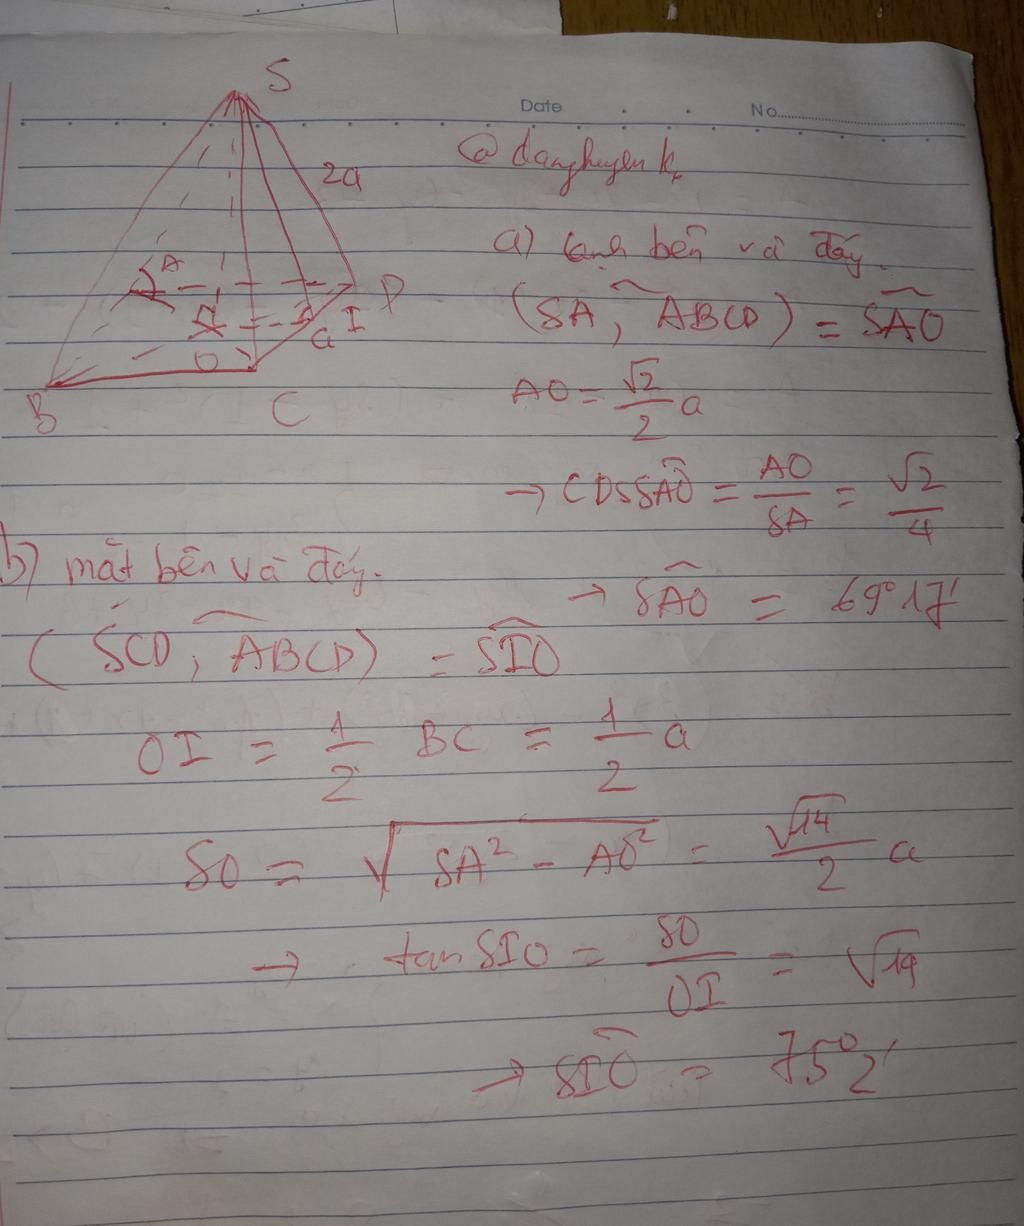 Date No.
S
2a
A
D
I
a
O
B
C
a) cạnh bên và đáy.
(SA, ABCD) = SAO
AO = √2/2 a
→ cos SAO = AO/SA = √2/4
→ SAO = 69°17'
b) mặt bên và đáy.
(SCD, ABCD) = SIO
OI = 1/2 BC = 1/2 a
SO = √(SA² - AO²) = √14/2 a
→ tan SIO = SO/OI = √14
→ SIO = 75°2'